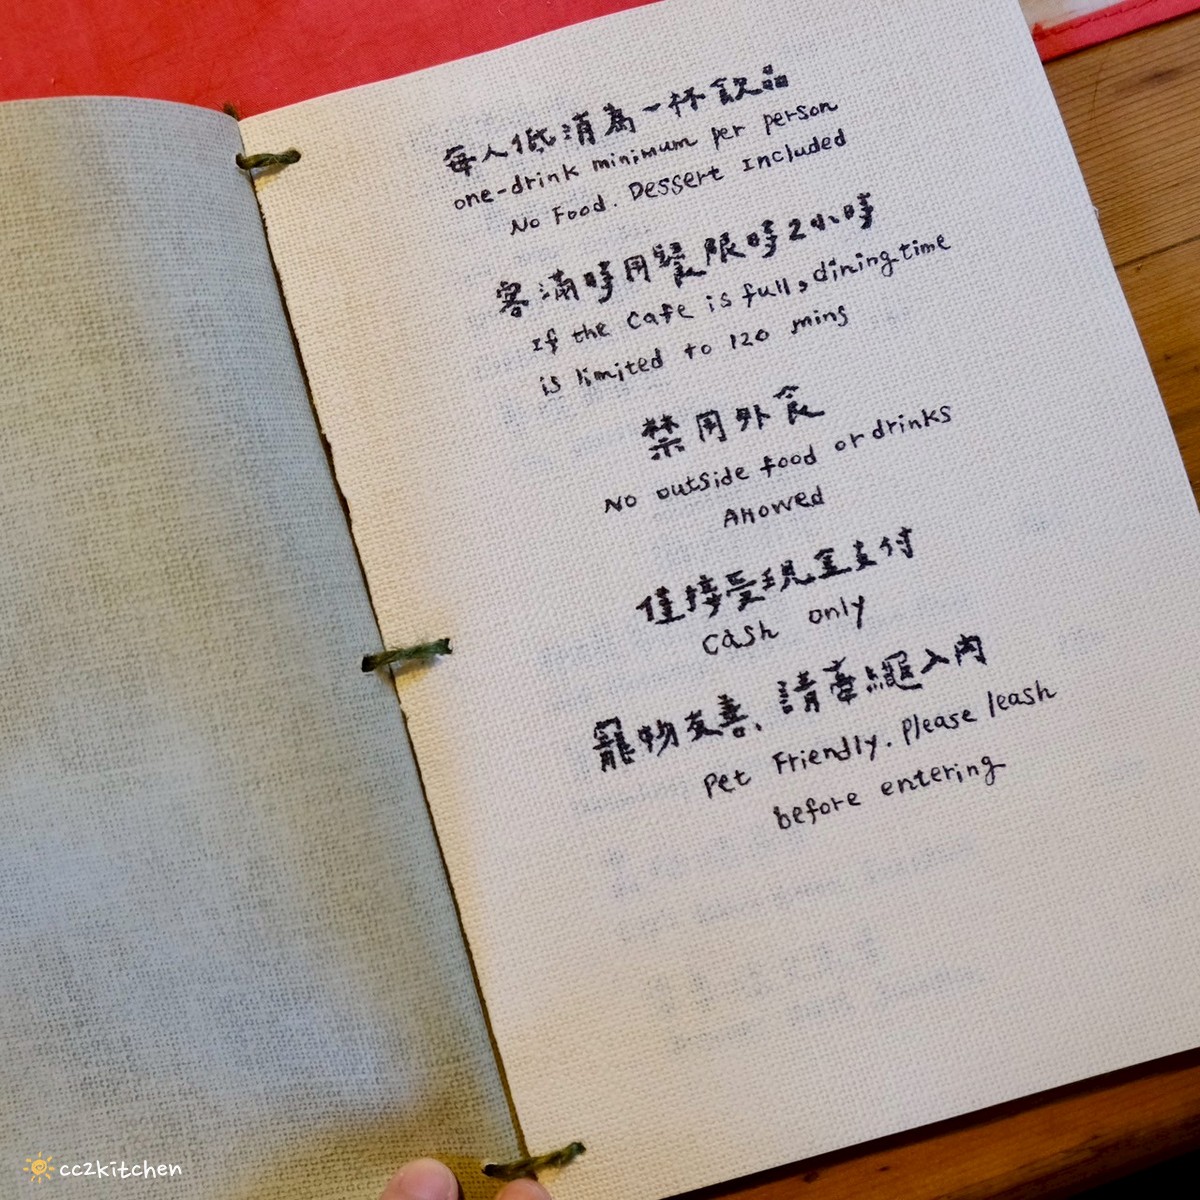 每人低消為一杯飲品
one-drink minimum per person
No Food. Dessert Included
客滿時用餐限時2小時
If the cafe is full, dining time
is limited to 120 mins
禁用外食
No outside food or drinks
Allowed
僅接受現金支付
Cash only
寵物友善、請牽繩入內
Pet Friendly. Please leash
before entering
cc2kitchen